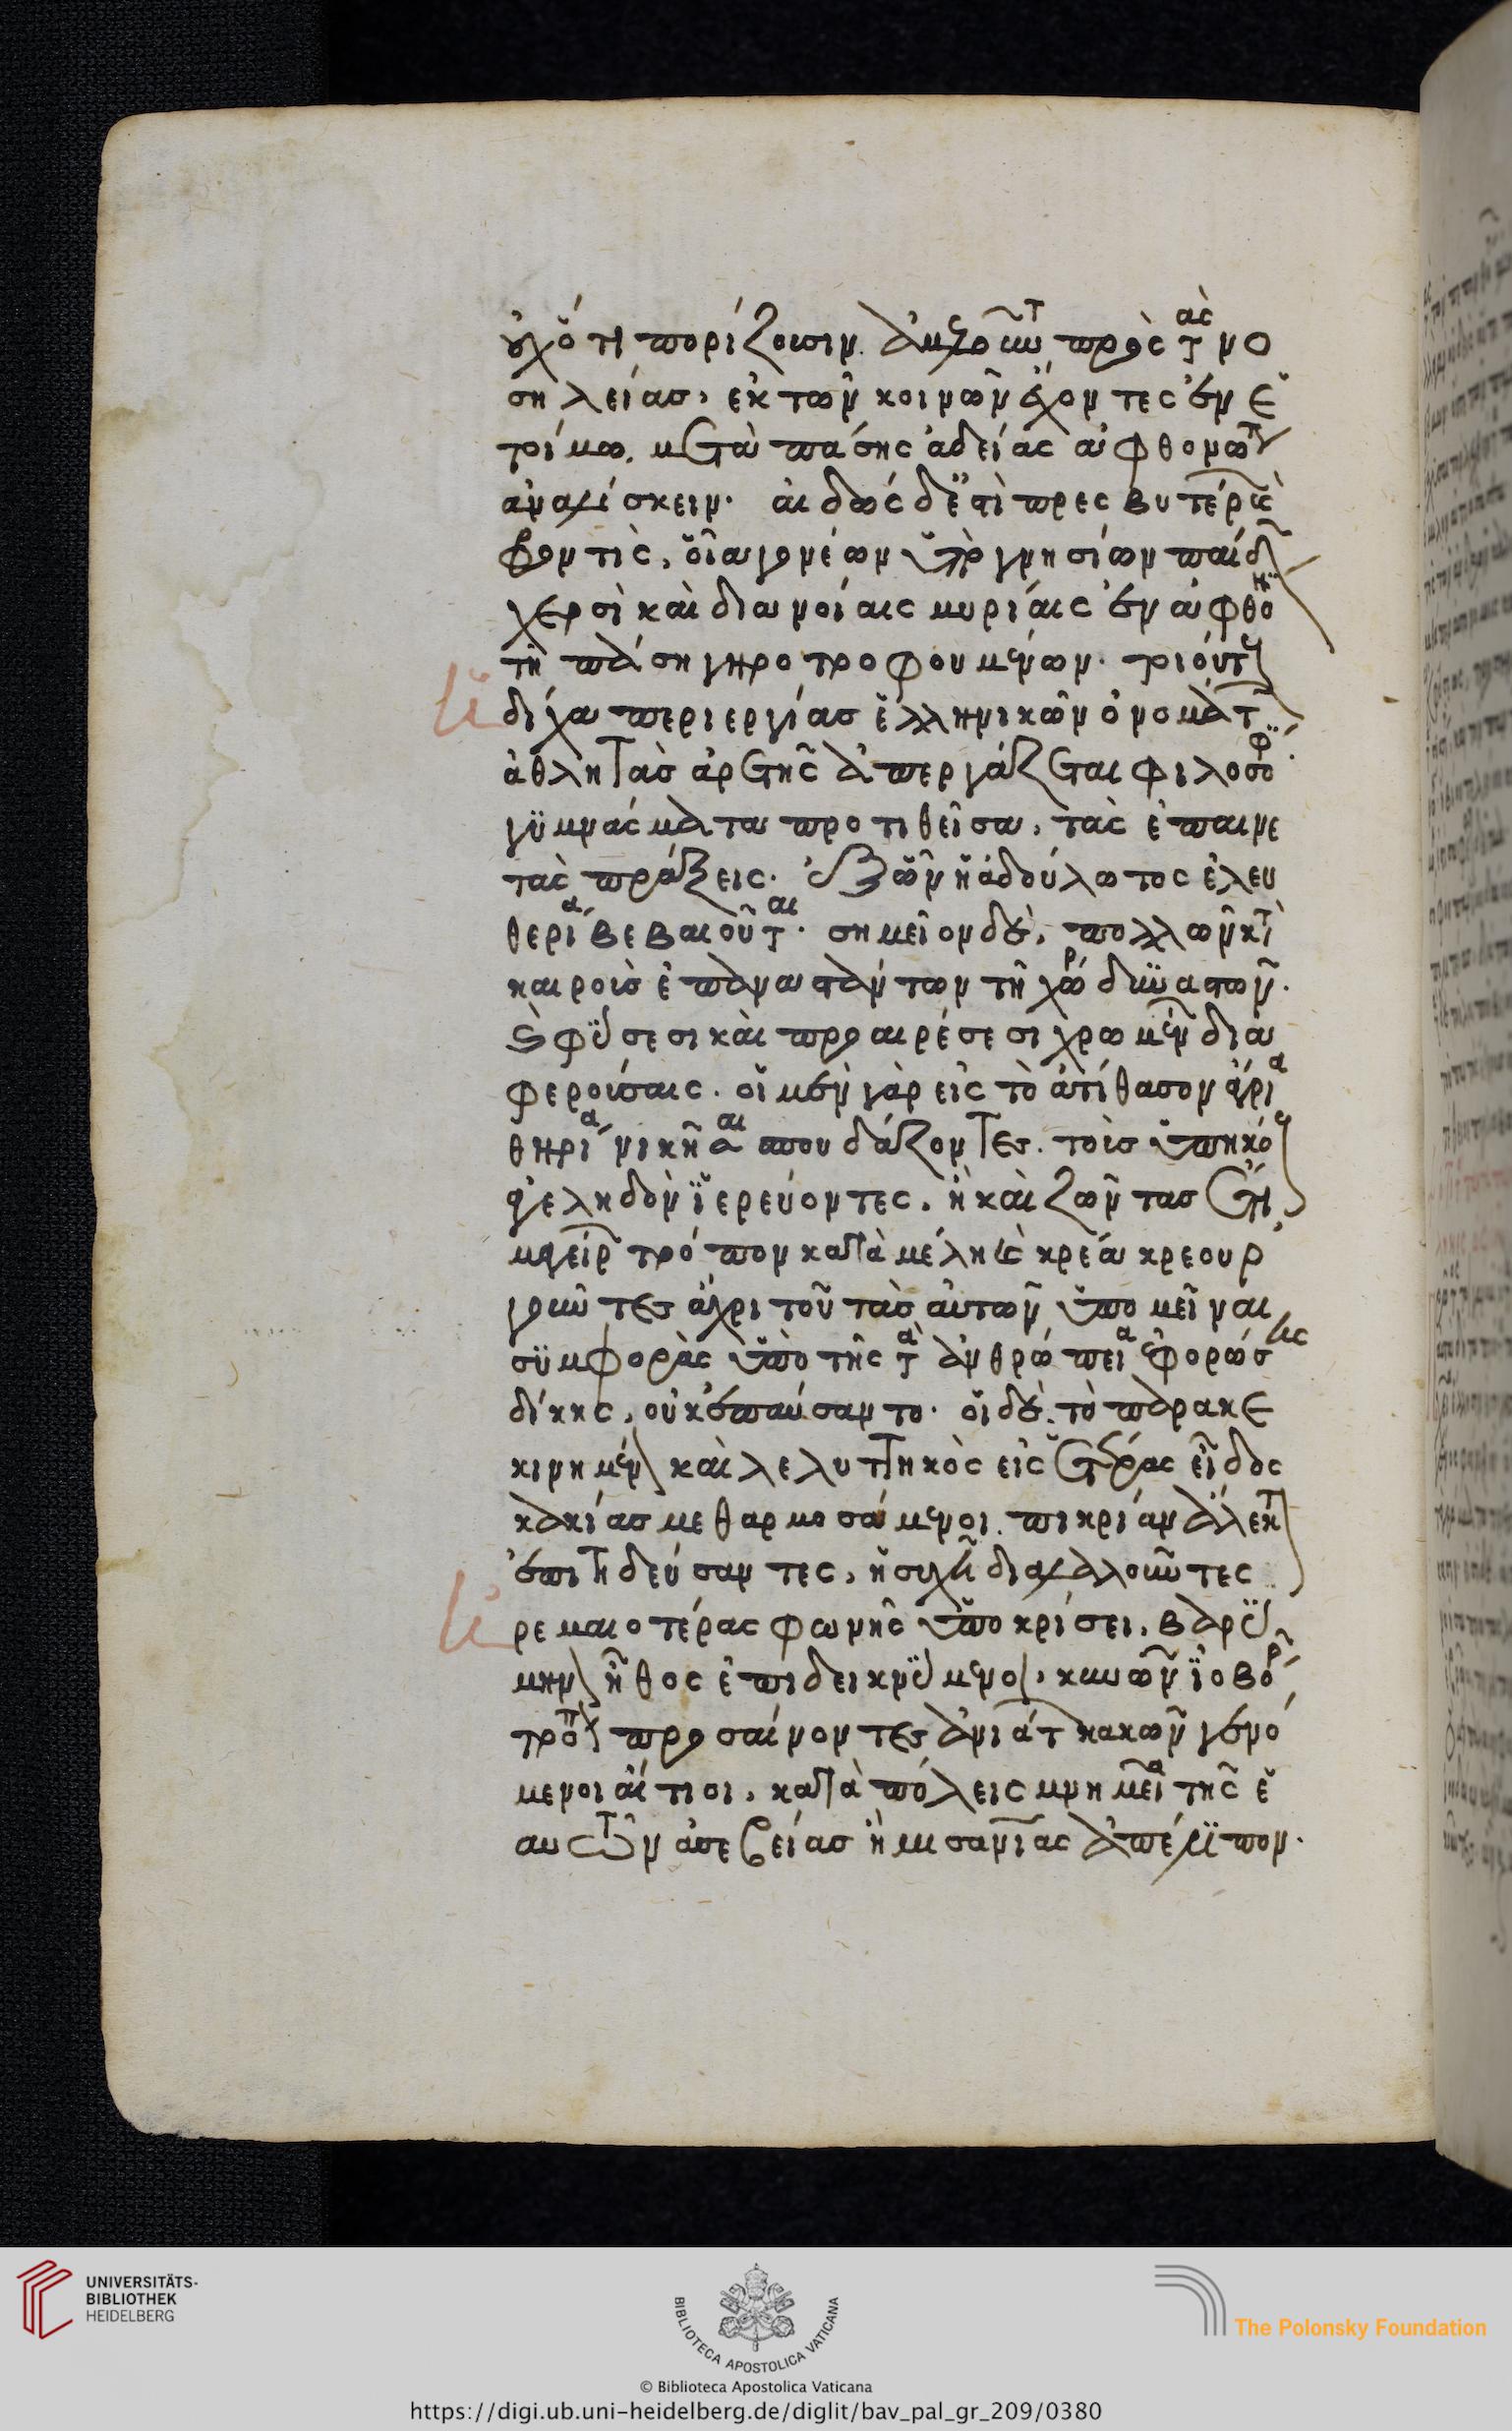 οὐχ ὅτι πορίζουσιν. ἀμελοῦντ πρὸς τὰς νο
σηλείας, ἐκ τῶν κοινῶν ἔχοντες ἐν ἑ
τοίμω, μετὰ πάσης ἀδείας ἀφθονωτ
ἀναλίσκειν. αἰδὼς δἐστὶ πρεσβυτέρ καὶ
φροντὶς, οἷα γονέων ὑπὸ γνησίων παίδ
χερσὶ καὶ διανοίαις μυρίαις ἐν ἀφθονί
τῆ πάση γηροτροφουμένων. τοιούτους
δίχα περιεργίας ἑλληνικῶν ὀνομάτ
ἀθλητὰς ἀρετῆς ἀπεργάζεται φιλοσοφ
γϋμνάσματα προτιθεῖσα, τὰς ἐπαινε
τὰς πράξεις. ἐξ ὧν ἡ ἀδούλωτος ἐλευ
θερία βεβαιοῦται. σημεῖον δὲ, πολλῶν κτ
καιροὺς ἐπαναστάντων τῆ χώρ δυναστῶν.
καὶ φύσεσι καὶ προαιρέσεσι χρωμέν δια
φερούσαις. οἱ μὲν γὰρ εἰς τὸ ἀτίθασον ἀγρία
θηρία νικῆσαι σπουδάζοντες. τοὺς ὑπηκό
ἀγεληδὸν ἱερεύοντες, ἢ καὶ ζῶντας ἔτι,
μαγείρ τρόπον κατὰ μέλη καὶ κρέα κρεουρ
γοῦντες ἄχρι τοῦ τὰς αὐτῶν ὑπομεῖναι
σϋμφορὰς ὑπὸ τῆς τὰ ἀνθρώπεια ἐφορώσης
δίκης, οὐκ ἐπαύσαντο. οἱ δὲ. τὸ παρακε
κινημένον καὶ λελυττηκὸς εἰς ἑτέρας εἶδος
κακίας μεθαρμοσάμενοι. πικρίαν ἄλεκτον
ἐπιτηδεύσαντες, ἡσυχῆ διαλαλοῦντες
ρεμαιοτέρας φωνῆς ὑποκρίσει, βαρύ
μην ἦθος ἐπιδεικνύμενοι, κυνῶν ἰοβόρ
τρόπον προσαίνοντες ἀνιάτ κακῶν γενό
μενοι αἴτιοι, κατὰ πόλεις μνημεῖα τῆς ἑ
αυτῶν ἀσεβείας ἢ μισανίας ἀπέλιπον.
UNIVERSITÄTS-
BIBLIOTHEK
HEIDELBERG
BIBLIOTECA APOSTOLICA VATICANA
The Polonsky Foundation
© Biblioteca Apostolica Vaticana
https://digi.ub.uni-heidelberg.de/diglit/bav_pal_gr_209/0380